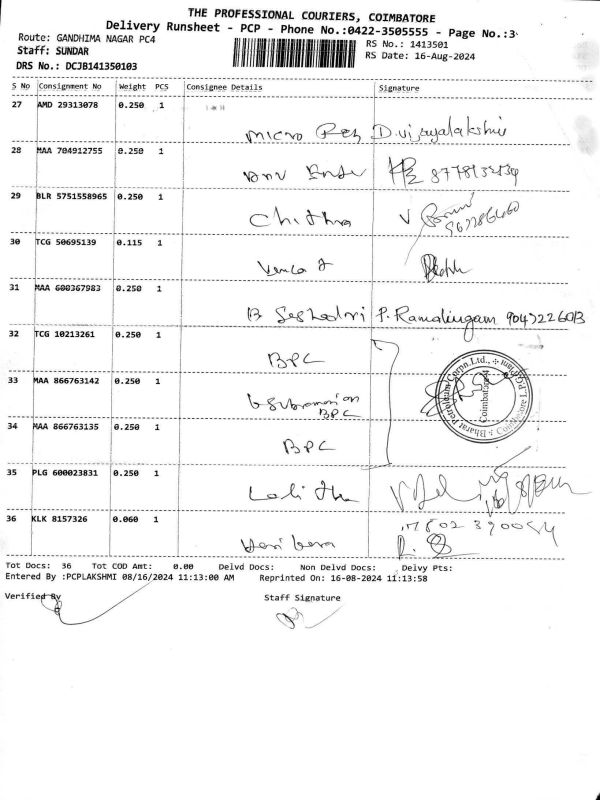 THE PROFESSIONAL COURIERS, COIMBATORE
Delivery Runsheet - PCP - Phone No.:0422-3505555 - Page No.:3
Route: GANDHIMA NAGAR PC4
RS No.: 1413501
Staff: SUNDAR
RS Date: 16-Aug-2024
DRS No.: DCJB141350103
S No Consignment No Weight PCS Consignee Details Signature
27 AMD 29313078 0.250 1
Micro D. Vijayalakshmi
28 MAA 704912755 0.250 1
29 BLR 5751558965 0.250 1
Chithra
30 TCG 50695139 0.115 1
31 MAA 600367983 0.250 1
B Seshadri P. Ramalingam 9047226013
32 TCG 10213261 0.250 1
BPC
33 MAA 866763142 0.250 1
BPC
Bharat Petroleum Corpn. Ltd.,
Coimbatore
34 MAA 866763135 0.250 1
BPC
35 PLG 600023831 0.250 1
Lalitha
36 KLK 8157326 0.060 1
Tot Docs: 36 Tot COD Amt: 0.00 Delvd Docs: Non Delvd Docs: Delvy Pts:
Entered By :PCPLAKSHMI 08/16/2024 11:13:00 AM Reprinted On: 16-08-2024 11:13:58
Verified By Staff Signature